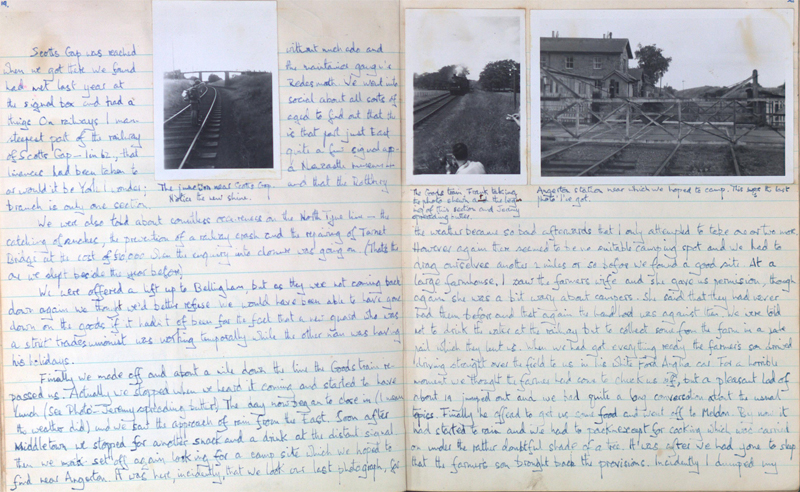 Scotts Gap was reached
without much ado and
when we got there we found
the maintainance gang in
had met last year at
Redesmouth. We went into
the signal box and had a
social about all sorts of
things On railways I
to find out that the
steepest part of the railway
is that part just East
of Scotts Gap - 1 in 62, that
quite a few signal
had been taken to
a Newcastle museum
or would it be York I wonder;
and that the Rothbury
branch is only one section.
The junction near Scotts Gap.
Notice the new shine.
We were also told about countless occurences on the North Tyne line - the
catching of , the prevention of a railway crash and the repairing of Tarset
Bridge at the cost of when the enquiry into closure was going on (Thats the
one we slept beside the year before)
We were offered a lift up to Bellingham, but as they were not coming back
down again we thought we'd better refuse. We would have been able to have gone
down on the goods if it hadn't of been for the fact that a new guard who was
a strict tradesunionist was working temporally while the other man was having
his holidays.
Finally we made off and about a mile down the line the Goods train re-
passed us. Actually we stopped when we heard it coming and started to have
lunch (see Photo - Jeremy spreading butter) The day now began to close in (I mean
the weather did) and we saw the approach of rain from the East. Soon after
Middletown we stopped for another snack and a drink at the distant signal.
Then we set off again looking for a camp site which we hoped to
find near Angerton. It was here, incidently, that we took our last photograph, for
The Goods train Frank taking
the photo and the
of this section and Jeremy
spreading butter.
Angerton station near which we hoped to camp. This was the last
photo I've got.
the weather became so bad afterwards that I only attempted to take one or two more
However again there seemed to be no suitable camping spot and we had to
drag ourselves another 2 miles or so before we found a good site. At a
large farmhouse, I saw the farmers wife and she gave us permission, though
again she was a bit wary about campers. She said that they had never
had them before and that again the hard was against them We were told
not to drink the water at the railway but to collect some from the farm in a
pail which they lent us. When we had got everything ready the farmers son arrived
driving straight over the field to us in his white Ford Anglia car. For a horrible
moment we thought the farmer had come to chuck us off, but a pleasant lad of
about 19 jumped out and we had quite a long conversation about the usual
topics. Finally he offered to get us some food and went off to Meldon. By now it
had started to rain and we had to pack except for cooking which was carried
on under the rather doubtful shade of a tree. It was after we had gone to sleep
that the farmers son brought back the provisions. Incidently I dumped my